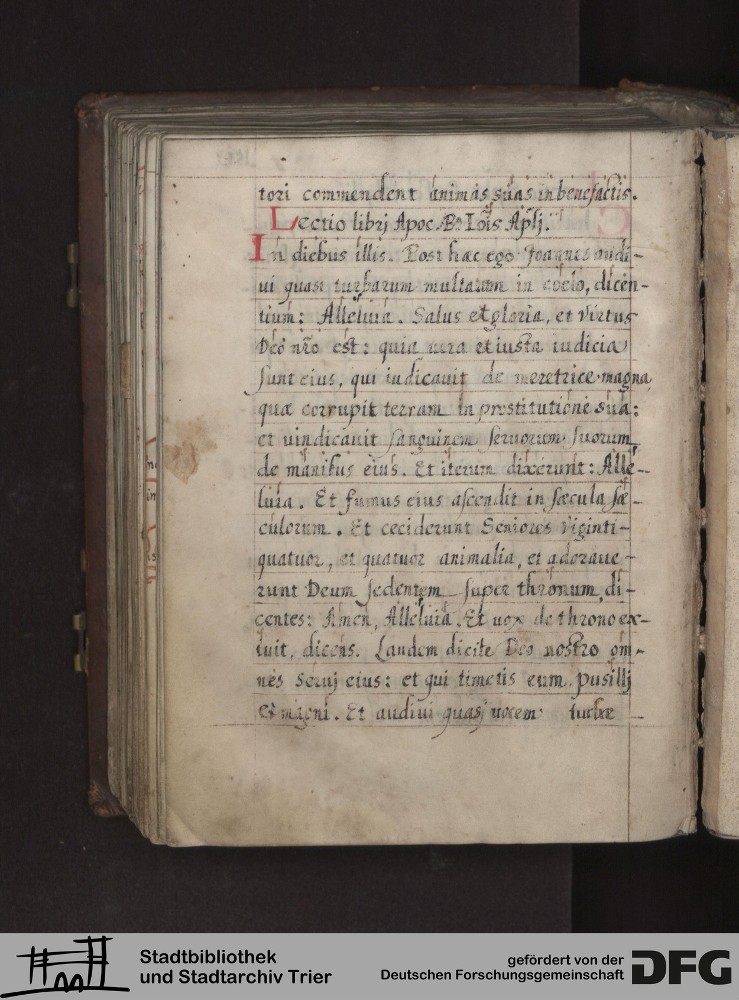 tori commendent animas suas in benefactis.
Lectio librj Apoc. Bti Iōis Aplj.
In diebus illis. Post hæc ego Joannes audi-
ui quasi turbarum multarum in coelo, dicen-
tium: Alleluia. Salus et gloria, et virtus
Deo nr̄o est: quia uera et iusta iudicia
sunt eius, qui iudicauit de meretrice magna
quæ corrupit terram in prostitutione sua:
et uindicauit sanguinem seruorum suorum
de manibus eius. Et iterum dixerunt: Alle-
luia. Et fumus eius ascendit in sæcula sæ-
culorum. Et ceciderunt Seniores viginti-
quatuor, et quatuor animalia, et adoraue-
runt Deum sedentem super thronum, di-
centes: Amen, Alleluia. Et uox de throno ex-
iuit, dicens. Laudem dicite Deo nostro om-
nes seruj eius: et qui timetis eum pusillj
et magni. Et audiui quasj uocem turbæ
Stadtbibliothek
und Stadtarchiv Trier
gefördert von der
Deutschen Forschungsgemeinschaft
DFG